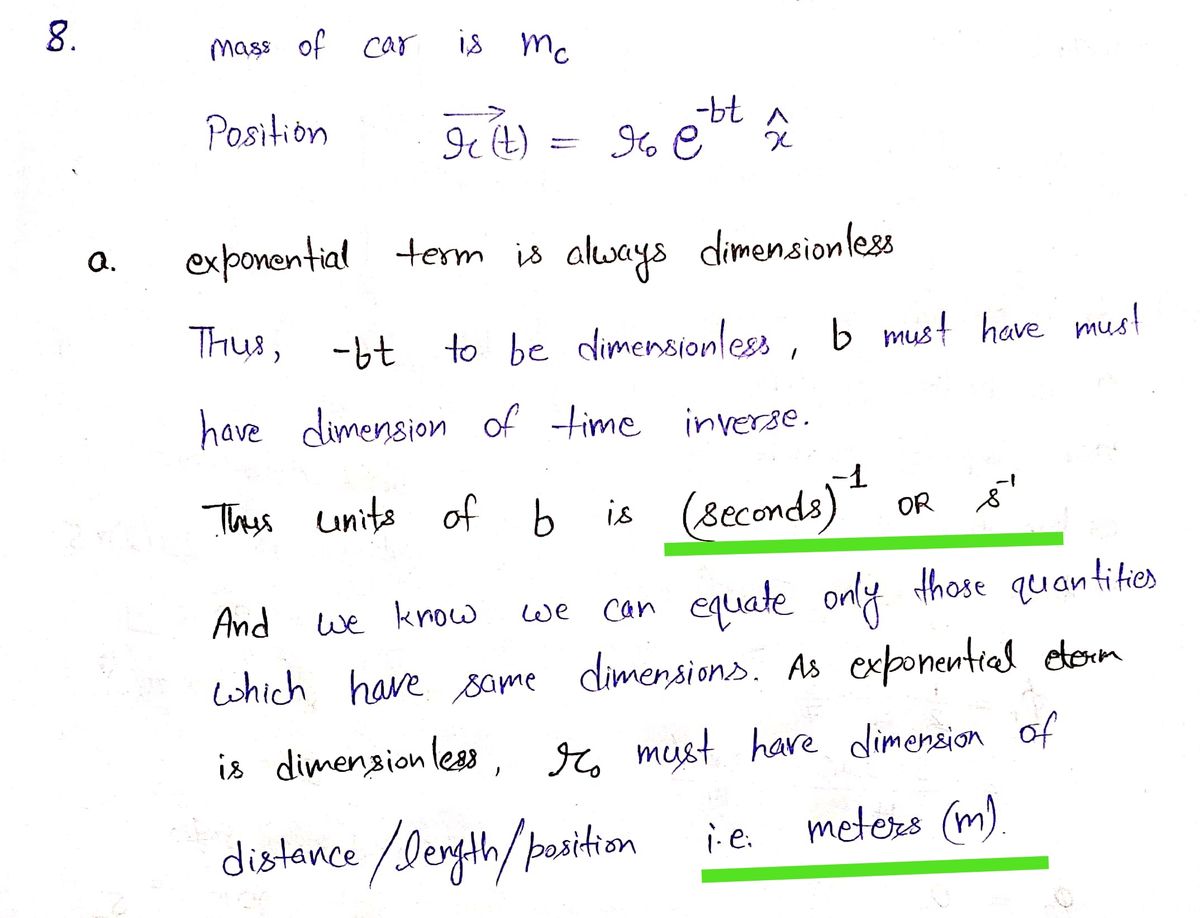 8. Mass of car is mc
Position r(t) = r₀ e^-bt x̂
a. exponential term is always dimensionless
Thus, -bt to be dimensionless, b must have must
have dimension of time inverse.
Thus units of b is (seconds)⁻¹ OR s⁻¹
And we know we can equate only those quantities
which have same dimensions. As exponential term
is dimensionless, r₀ must have dimension of
distance/length/position i.e. meters (m).